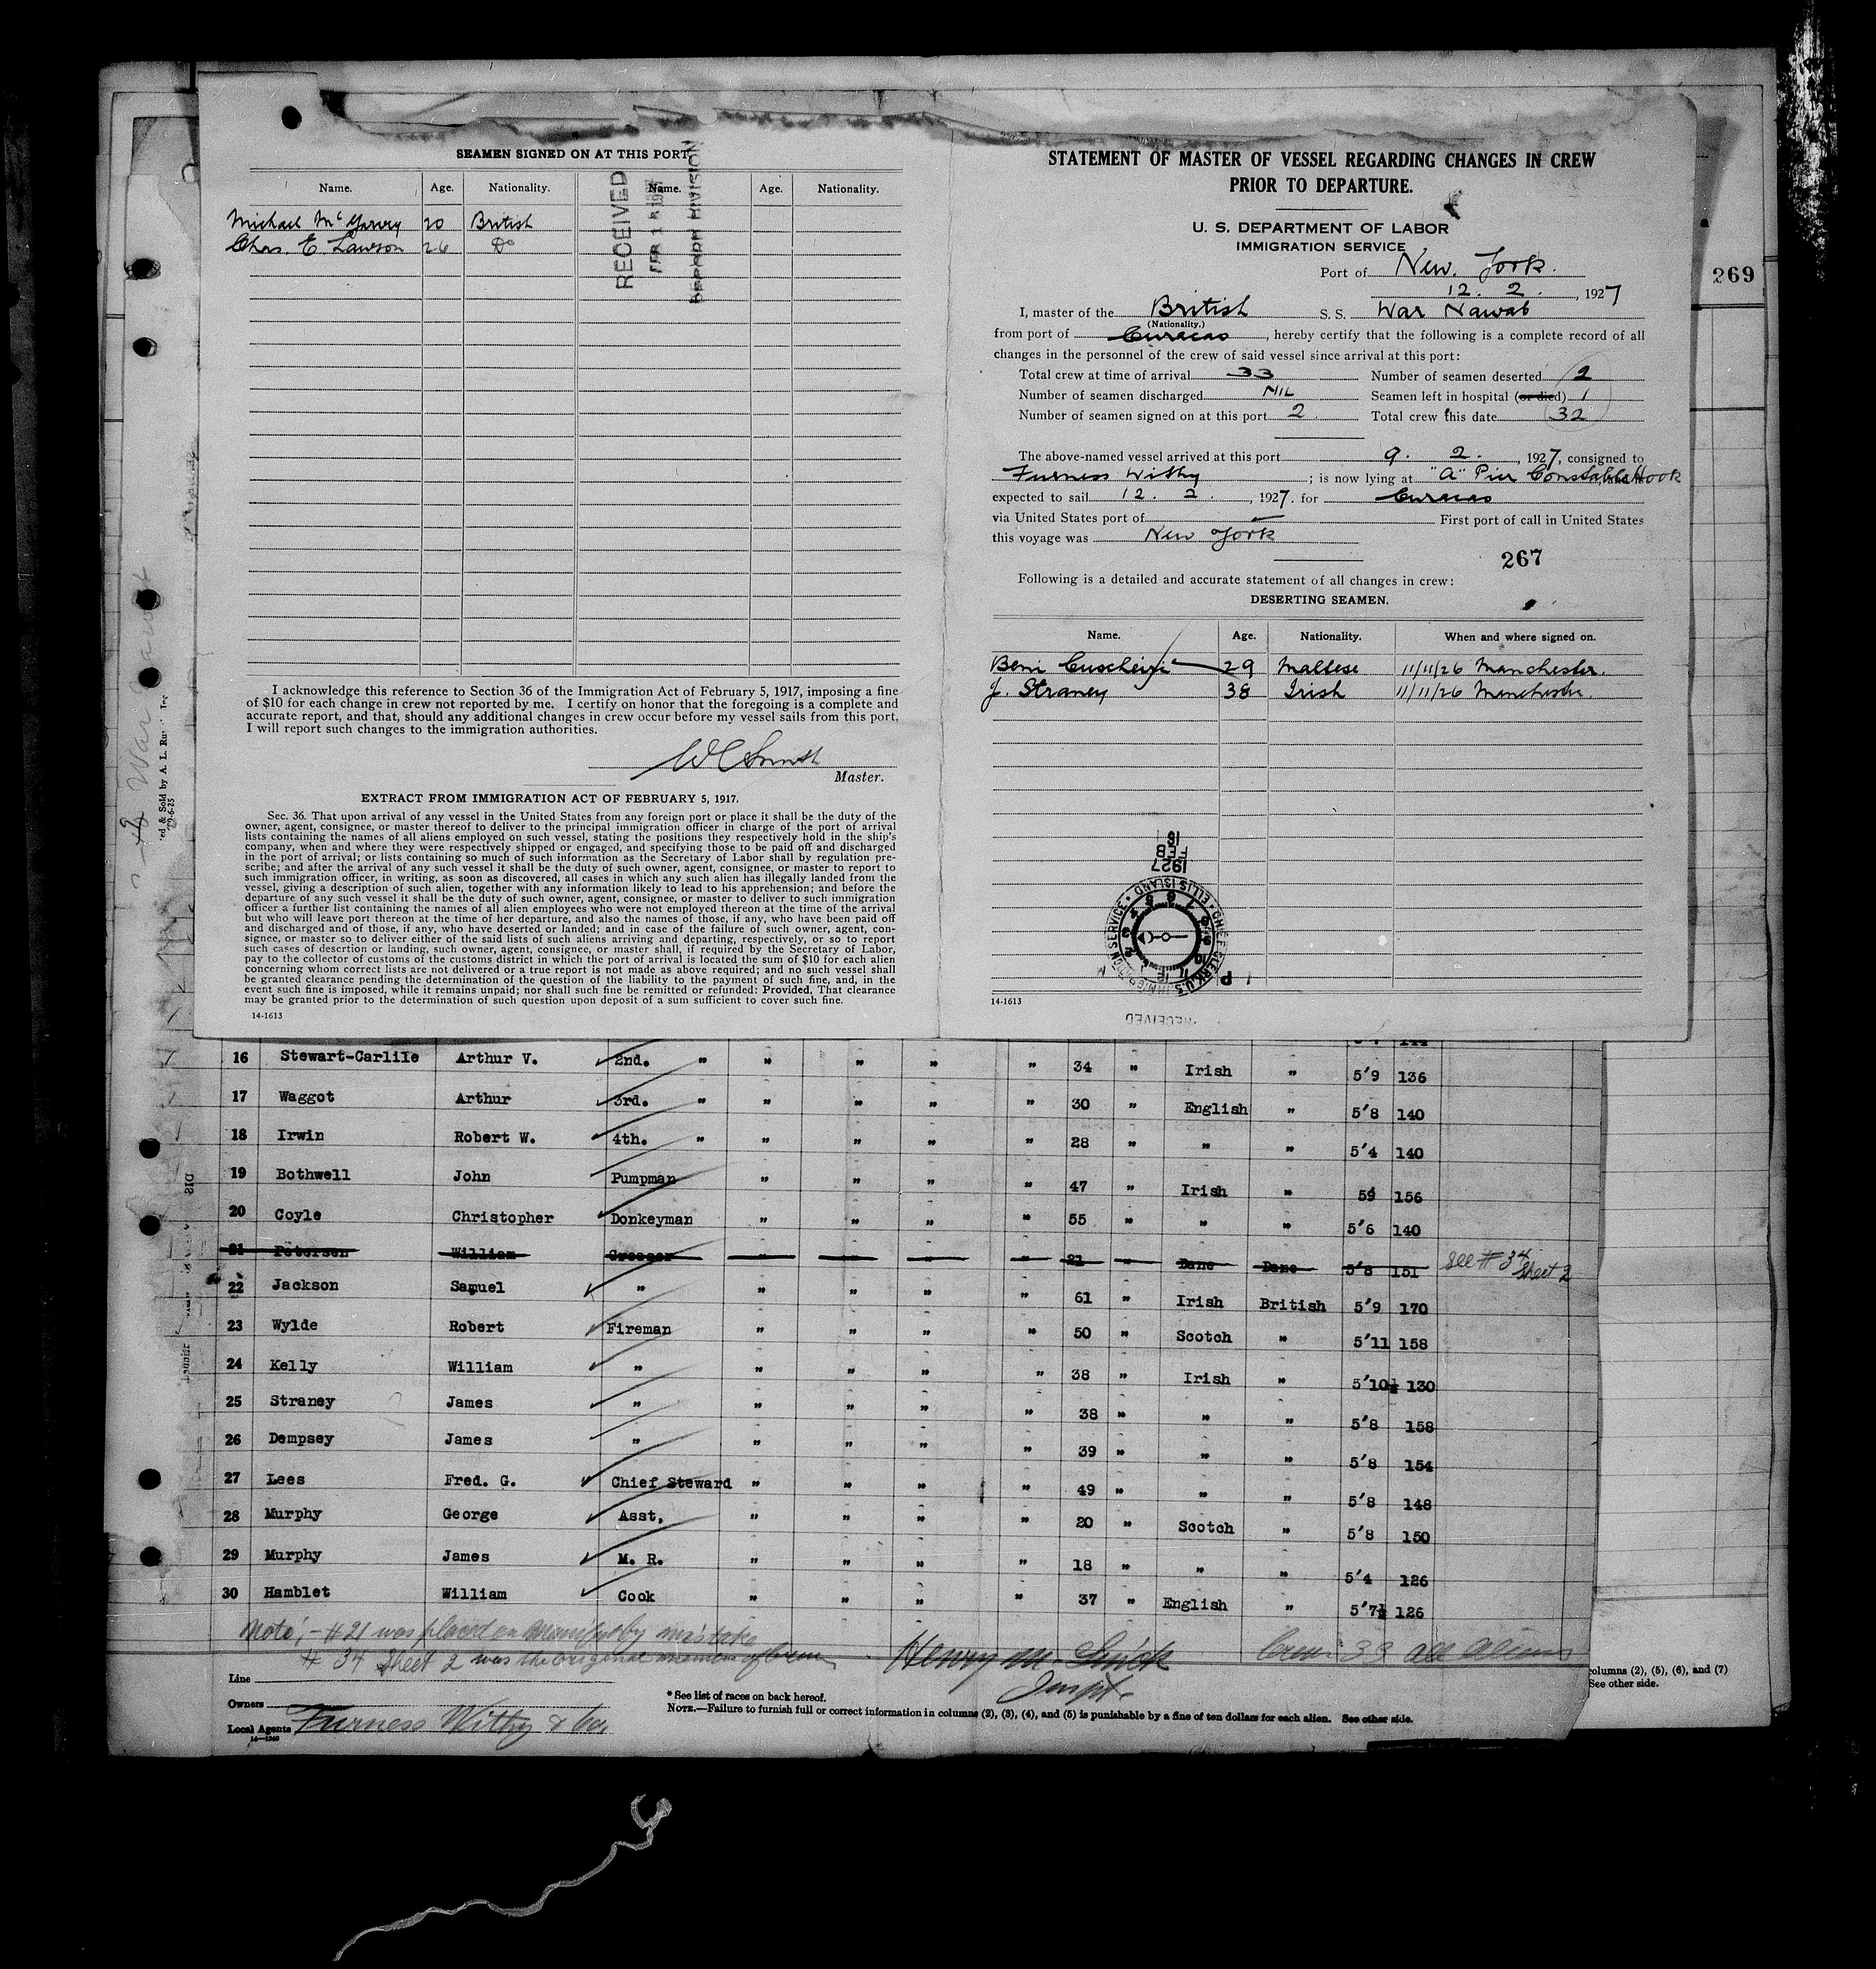 SEAMEN SIGNED ON AT THIS PORT
Name. Age. Nationality. Name. Age. Nationality.
Michael McGarvey 20 British
Chas. E. Lawson 26 Do
RECEIVED
FEB 1
DIVISION
I acknowledge this reference to Section 36 of the Immigration Act of February 5, 1917, imposing a fine
of $10 for each change in crew not reported by me. I certify on honor that the foregoing is a complete and
accurate report, and that, should any additional changes in crew occur before my vessel sails from this port,
I will report such changes to the immigration authorities.
WC Smith
Master.
EXTRACT FROM IMMIGRATION ACT OF FEBRUARY 5, 1917.
Sec. 36. That upon arrival of any vessel in the United States from any foreign port or place it shall be the duty of the
owner, agent, consignee, or master thereof to deliver to the principal immigration officer in charge of the port of arrival
lists containing the names of all aliens employed on such vessel, stating the positions they respectively hold in the ship's
company, when and where they were respectively shipped or engaged, and specifying those to be paid off and discharged
in the port of arrival; or lists containing so much of such information as the Secretary of Labor shall by regulation pre-
scribe; and after the arrival of any such vessel it shall be the duty of such owner, agent, consignee, or master to report to
such immigration officer, in writing, as soon as discovered, all cases in which any such alien has illegally landed from the
vessel, giving a description of such alien, together with any information likely to lead to his apprehension; and before the
departure of any such vessel it shall be the duty of such owner, agent, consignee, or master to deliver to such immigration
officer a further list containing the names of all alien employees who were not employed thereon at the time of the arrival
but who will leave port thereon at the time of her departure, and also the names of those, if any, who have been paid off
and discharged and of those, if any, who have deserted or landed; and in case of the failure of such owner, agent, con-
signee, or master so to deliver either of the said lists of such aliens arriving and departing, respectively, or so to report
such cases of desertion or landing, such owner, agent, consignee, or master shall, if required by the Secretary of Labor,
pay to the collector of customs of the customs district in which the port of arrival is located the sum of $10 for each alien
concerning whom correct lists are not delivered or a true report is not made as above required; and no such vessel shall
be granted clearance pending the determination of the question of the liability to the payment of such fine, and, in the
event such fine is imposed, while it remains unpaid; nor shall such fine be remitted or refunded: Provided, That clearance
may be granted prior to the determination of such question upon deposit of a sum sufficient to cover such fine.
14-1613
STATEMENT OF MASTER OF VESSEL REGARDING CHANGES IN CREW
PRIOR TO DEPARTURE.
U. S. DEPARTMENT OF LABOR
IMMIGRATION SERVICE
Port of New York.
12. 2. , 1927
I, master of the British S. S. War Nawab
(Nationality.)
from port of Curacao, hereby certify that the following is a complete record of all
changes in the personnel of the crew of said vessel since arrival at this port:
Total crew at time of arrival 33 Number of seamen deserted 2
Number of seamen discharged NIL Seamen left in hospital (or died) 1
Number of seamen signed on at this port 2 Total crew this date 32
The above-named vessel arrived at this port 9. 2. , 1927, consigned to
Furness Withy; is now lying at "A" Pier Constable Hook
expected to sail 12. 2. , 1927. for Curacao
via United States port of First port of call in United States
this voyage was New York
267
Following is a detailed and accurate statement of all changes in crew:
DESERTING SEAMEN.
Name. Age. Nationality. When and where signed on.
Beni Cuscheiri 29 Maltese 11/11/26 Manchester.
J. Straney 38 Irish 11/11/26 Manchester.
18
FEB
1927
ELLIS ISLAND
CHIEF CLERK U.S. IMMIGRATION SERVICE
RECEIVED
14-1613
269
16 Stewart-Carlile Arthur V. 2nd. " " " " " 34 " Irish " 5'9 136
17 Waggot Arthur 3rd. " " " " " 30 " English " 5'8 140
18 Irwin Robert W. 4th. " " " " " 28 " " " 5'4 140
19 Bothwell John Pumpman " " " " 47 " Irish " 59 156
20 Coyle Christopher Donkeyman " " " " 55 " " " 5'6 140
21 Petersen William Greaser " " " " 21 " Dane Dane 5'8 151 See # 34 Sheet 2
22 Jackson Samuel " " " " " 61 " Irish British 5'9 170
23 Wylde Robert Fireman " " " " 50 " Scotch " 5'11 158
24 Kelly William " " " " " 38 " Irish " 5'10½ 130
25 Straney James " " " " " 38 " " " 5'8 158
26 Dempsey James " " " " " 39 " " " 5'8 154
27 Lees Fred. G. Chief Steward " " " " 49 " " " 5'8 148
28 Murphy George Asst. " " " " 20 " Scotch " 5'8 150
29 Murphy James M. R. " " " " 18 " " " 5'4 126
30 Hamblet William Cook " " " " 37 " English " 5'7½ 126
Note; - #21 was placed on Manifest by mistake
# 34 Sheet 2 was the original member of Crew
Crew 33 all aliens
Line
Owners
Local Agents Furness Withy & Co.
* See list of races on back hereof.
NOTE.—Failure to furnish full or correct information in columns (2), (3), (4), and (5) is punishable by a fine of ten dollars for each alien. See other side.
columns (2), (5), (6), and (7)
See other side.